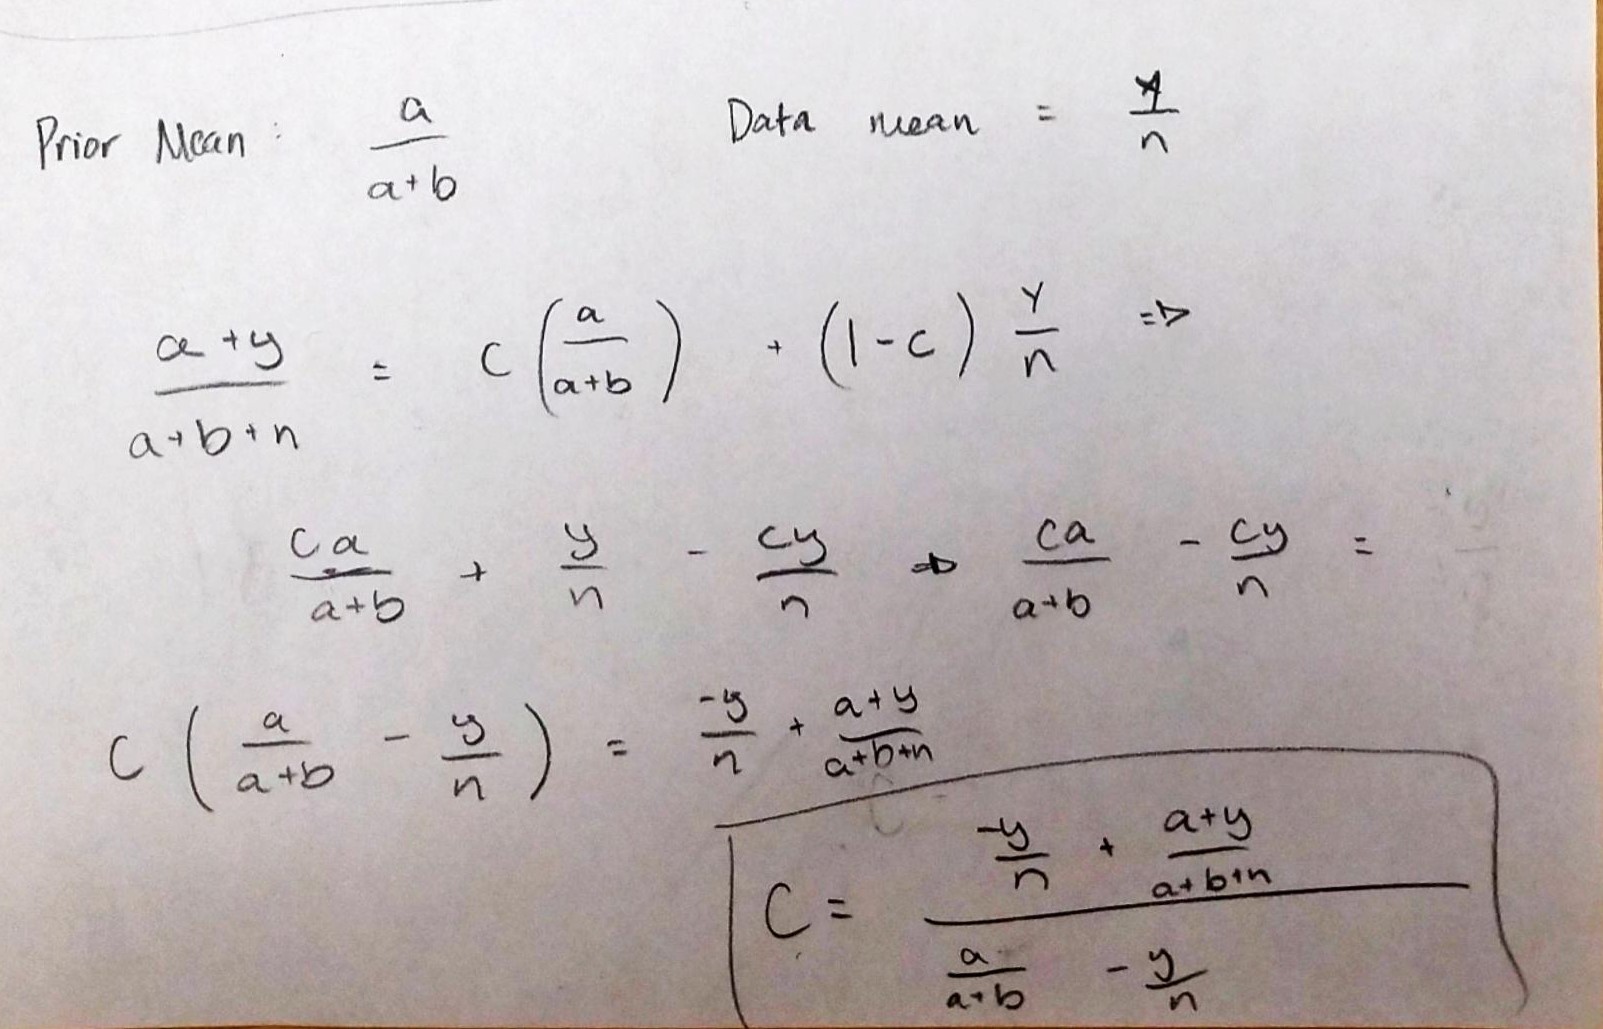 Prior Mean : a/(a+b) Data mean = y/n
(a+y)/(a+b+n) = C (a/(a+b)) + (1-c) y/n =>
ca/(a+b) + y/n - cy/n => ca/(a+b) - cy/n =
C (a/(a+b) - y/n) = -y/n + (a+y)/(a+b+n)
C = (-y/n + (a+y)/(a+b+n)) / (a/(a+b) - y/n)